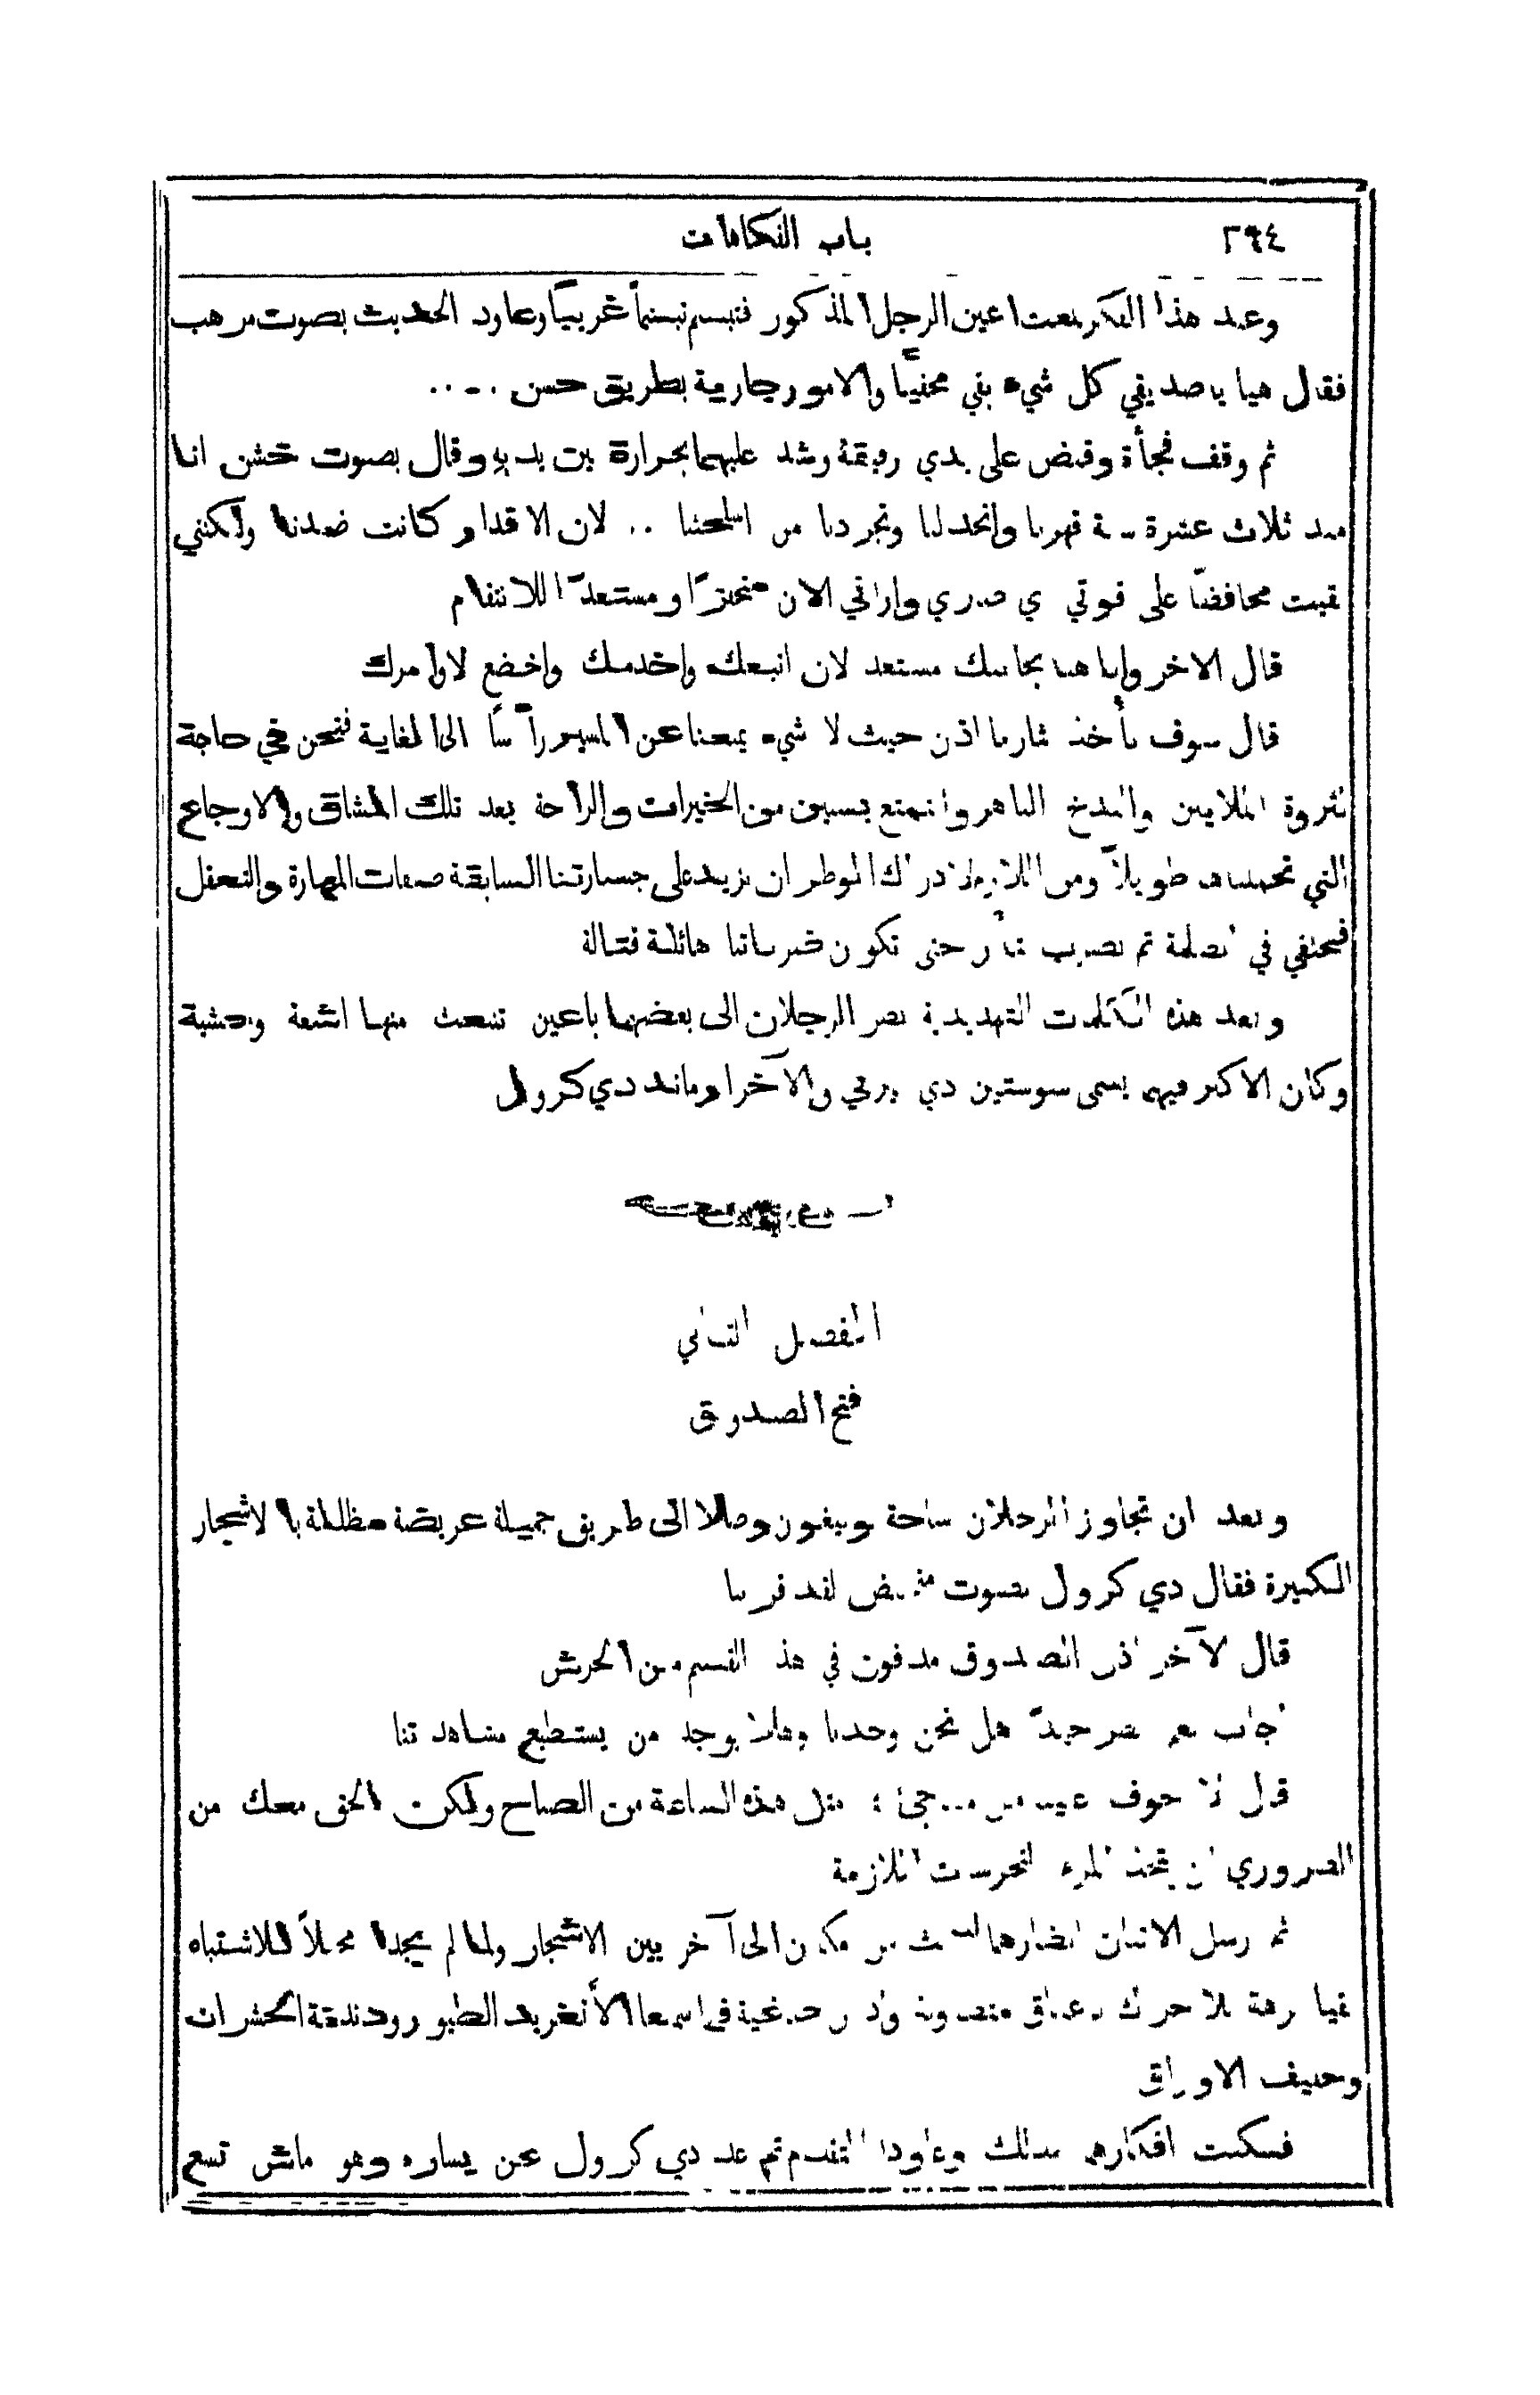 ٢٩٤
باب الفكاهات
وعند هذا الفكر لمعت اعين الرجل المذكور فتبسم تبسماً غريباً وعاود الحديث بصوت مرهب
فقال هيا يا صديقي كل شيء بقي مخفياً والامور جارية بطريق حسن . . . .
ثم وقف فجأة وقبض على يدي رفيقه وشد عليهما بحرارة بين يديه وقال بصوت خشن اننا
منذ ثلاث عشرة سنة قهرنا وانخذلنا وتجردنا من اسلحتنا .. لان الاقدار كانت ضدنا ولكنني
بقيت محافظاً على قوتي في صدري واراني الان متحفزاً ومستعداً للانتقام
قال الاخر وانا هنا بجانبك مستعد لان اتبعك واخدمك واخضع لاوامرك
قال سوف نأخذ ثارنا اذن حيث لا شيء يمنعنا عن المسير رأساً الى الغاية فنحن في حاجة
لثروة الملايين والبذخ الباهر والتمتع بسنين من الخيرات والراحة بعد تلك المشاق والاوجاع
التي تحملناها طويلاً ومن اللازم لادراك الوطر ان نزيد على جسارتنا السابقة صفات المهارة والتعقل
فنختفي في الظلمة ثم نضرب حتى تكون ضرباتنا هائلة قتالة
وبعد هذه الكلمات التهديدية نظر الرجلان الى بعضهما باعين تنبعث منها اشعة وحشية
وكان الاكبر فيهم يسمى سوستين دي والآخر ارماند دي كرول
الفصل الثاني
فتح الصندوق
وبعد ان تجاوز الرجلان ساحة وصلا الى طريق جميلة عريضة مظللة بالاشجار
الكبيرة فقال دي كرول بصوت منخفض لقد قربنا
قال الآخر اذن الصندوق مدفون في هذا القسم من الحرش
اجاب نعم هل نحن وحدنا وهلا يوجد من يستطيع مشاهدتنا
قال لا خوف علينا من مثل هذه الساعة من الصباح ولكن الحق معك من
الضروري ان يتخذ المرء اللازمة
ثم ارسل الاثنان انظارهما من مكان الى آخر بين الاشجار ولما لم يجدا محلاً للاشتباه
بقيا برهة بلا حراك فما سمعا الا تغريد الطيور ودندنة الحشرات
وحفيف الاوراق
فسكنت افكارهم بذلك وعاودا التقدم ثم عد دي كرول عن يساره وهو ماش تسع